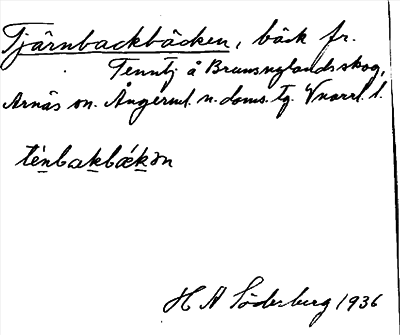 Tjärnbackbäcken, bäck fr.
Tenntj. å Brunsnylandsskog,
Arnäs sn. Ångerml. n. doms. tg. Vnorrl. l.
té̱nbaḵbǽḵən
H A Söderberg 1936